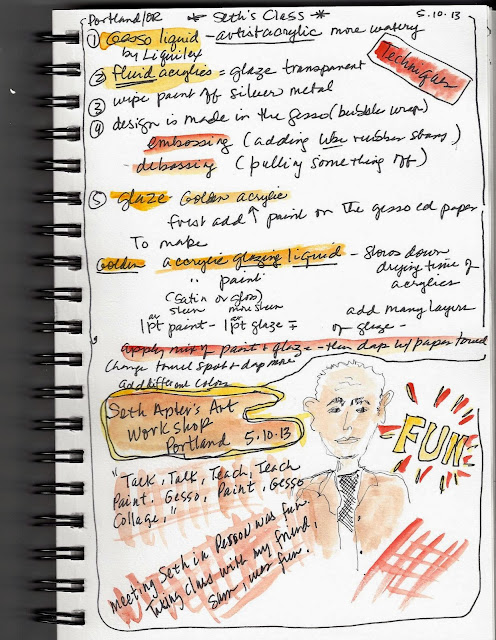 Portland/OR * Seth's Class * 5.10.13
① Gesso liquid - artist acrylic more watery
by Liquitex
Techniques
② fluid acrylics = glaze transparent
③ wipe paint off silver metal
④ design is made in the gesso (bubble wrap)
embossing (adding like rubber stamp)
- debossing (pulling something off)
⑤ glaze Golden acrylic
first add ↑ paint on the gessoed paper
To make
Golden acrylic glazing liquid - slows down
" paint drying time of
(satin or gloss) acrylics
sheen more sheen
1pt paint - 1pt glaze add many layers
of glaze -
apply mix of paint + glaze - then dap w/ paper towel
Change towel spot + dap more
Add different colors
Seth Apter's Art
Workshop
Portland 5.10.13
FUN
"Talk, Talk, Teach, Teach
Paint, Gesso, Paint, Gesso
Collage,"
Meeting Seth in Person was fun.
Taking class with my friend,
Sam, was fun.